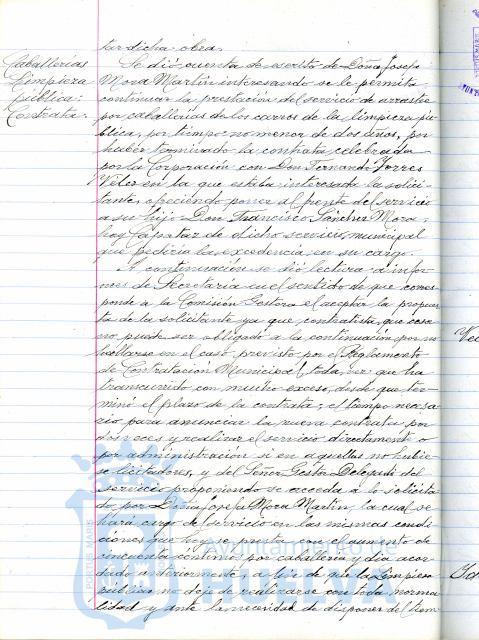 tar dicha obra.
Caballerías
Limpieza
pública:
Contrata.
Se dió cuenta de escrito de Doña Josefa
Mora Martín interesando se le permita
continuar la prestación del servicio de arrastre
por caballerías de los carros de la limpieza pú-
blica, por tiempo no menor de dos años, por
haber terminado la contrata celebrada
por la Corporación con Don Fernando Torres
Velez en la que estaba interesada la solici-
tante, ofreciendo poner al frente del servicio
a su hijo Don Francisco Sánchez Mora,
hoy Capataz de dicho servicio municipal
que pediría la excedencia en su cargo.
A continuación se dió lectura a infor-
mes de Secretaría en el sentido de que corres-
ponde a la Comisión Gestora el aceptar la propues-
ta de la solicitante ya que contratista que cesa
no puede ser obligado a la continuación por no
hallarse en el caso previsto por el Reglamento
de Contratación Municipal, toda vez que ha
transcurrido con mucho exceso, desde que ter-
minó el plazo de la contrata, el tiempo necesa-
rio para anunciar la nueva contrata por
dos veces y realizar el servicio directamente o
por administración si en aquellas no hubie-
se licitadores, y del Señor Gestor Delegado del
servicio proponiendo se acceda a lo solicita-
do por Doña Josefa Mora Martín, la cual se
hará cargo del servicio en las mismas condi-
ciones que hoy se presta con el aumento de
cincuenta céntimos por caballería y día acor-
dado anteriormente, a fin de que la Limpieza
pública no deje de realizarse con toda norma-
lidad y ante la necesidad de disponer del tiem-
PORTUS MARIS
Ayuntamiento de